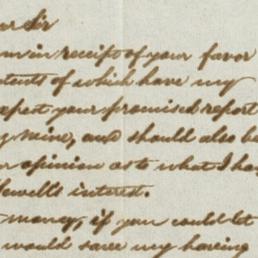 ar Sir
m in receipt of your favor
tents of which have my
xpect your promised report
g mine, and should also be
r opinion as to what I ha
Jewetts interest.
money, if you could let
would save my having